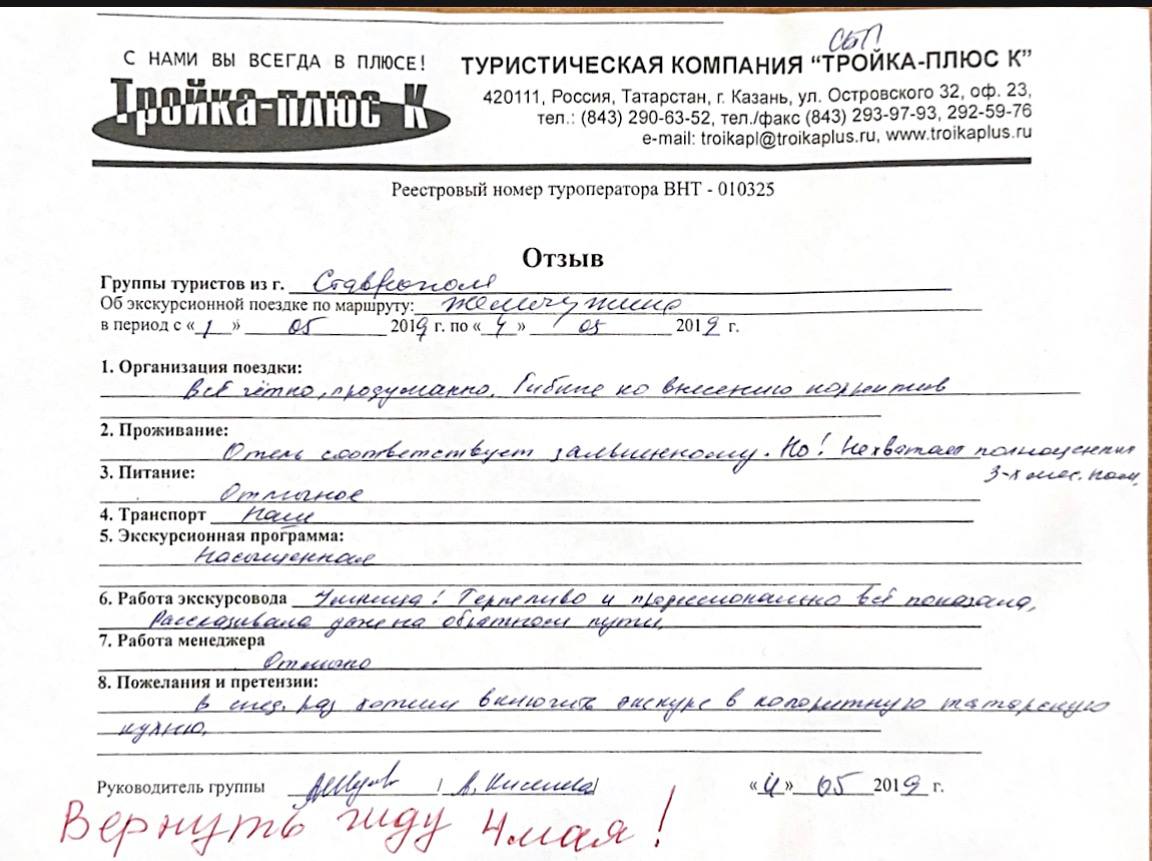 СБП
С НАМИ ВЫ ВСЕГДА В ПЛЮСЕ!
Тройка-плюс К
ТУРИСТИЧЕСКАЯ КОМПАНИЯ "ТРОЙКА-ПЛЮС К"
420111, Россия, Татарстан, г. Казань, ул. Островского 32, оф. 23,
тел.: (843) 290-63-52, тел./факс (843) 293-97-93, 292-59-76
e-mail: troikapl@troikaplus.ru, www.troikaplus.ru
Реестровый номер туроператора ВНТ - 010325
Отзыв
Группы туристов из г. Ставрополя
Об экскурсионной поездке по маршруту: Жемчужина
в период с «1» 05 2019 г. по «4» 05 2019 г.
1. Организация поездки:
Всё чётко, продуманно. Гибкие ко внесению корректив
2. Проживание:
Отель соответствует заявленному. Но! Не хватает полноценных
3-х мес. ном.
3. Питание:
Отличное
4. Транспорт Наш
5. Экскурсионная программа:
Насыщенная
6. Работа экскурсовода Умница! Терпеливо и профессионально всё показала,
Рассказывала даже на обратном пути.
7. Работа менеджера
Отлично
8. Пожелания и претензии:
В след. раз хотим включить экскурс в колоритную татарскую
кухню.
Руководитель группы / А. Киселева/ «4» 05 2019 г.
Вернуть гиду 4 мая!